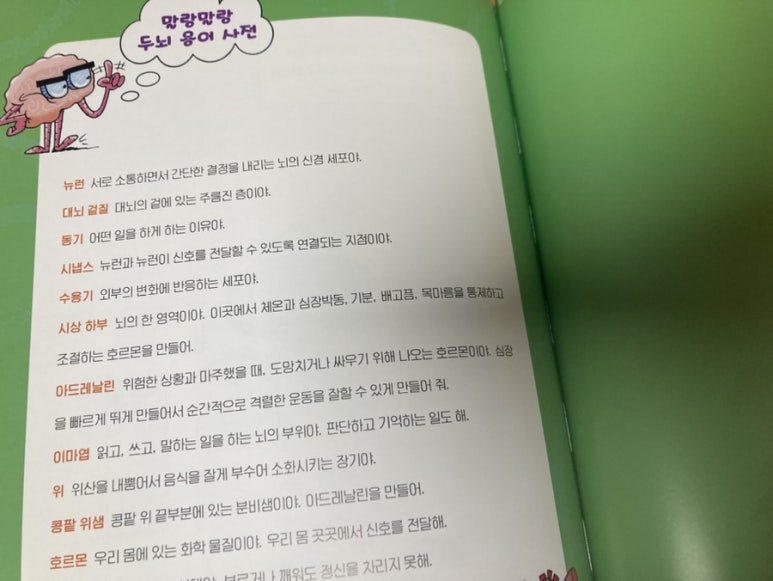 말랑말랑
두뇌 용어 사전
뉴런 서로 소통하면서 간단한 결정을 내리는 뇌의 신경 세포야.
대뇌 겉질 대뇌의 겉에 있는 주름진 층이야.
동기 어떤 일을 하게 하는 이유야.
시냅스 뉴런과 뉴런이 신호를 전달할 수 있도록 연결되는 지점이야.
수용기 외부의 변화에 반응하는 세포야.
시상 하부 뇌의 한 영역이야. 이곳에서 체온과 심장박동, 기분, 배고픔, 목마름을 통제하고
조절하는 호르몬을 만들어.
아드레날린 위험한 상황과 마주했을 때, 도망치거나 싸우기 위해 나오는 호르몬이야. 심장
을 빠르게 뛰게 만들어서 순간적으로 격렬한 운동을 잘할 수 있게 만들어 줘.
이마엽 읽고, 쓰고, 말하는 일을 하는 뇌의 부위야. 판단하고 기억하는 일도 해.
위 위산을 내뿜어서 음식을 잘게 부수어 소화시키는 장기야.
콩팥 위샘 콩팥 위 끝부분에 있는 분비샘이야. 아드레날린을 만들어.
호르몬 우리 몸에 있는 화학 물질이야. 우리 몸 곳곳에서 신호를 전달해.
부르거나 깨워도 정신을 차리지 못해.